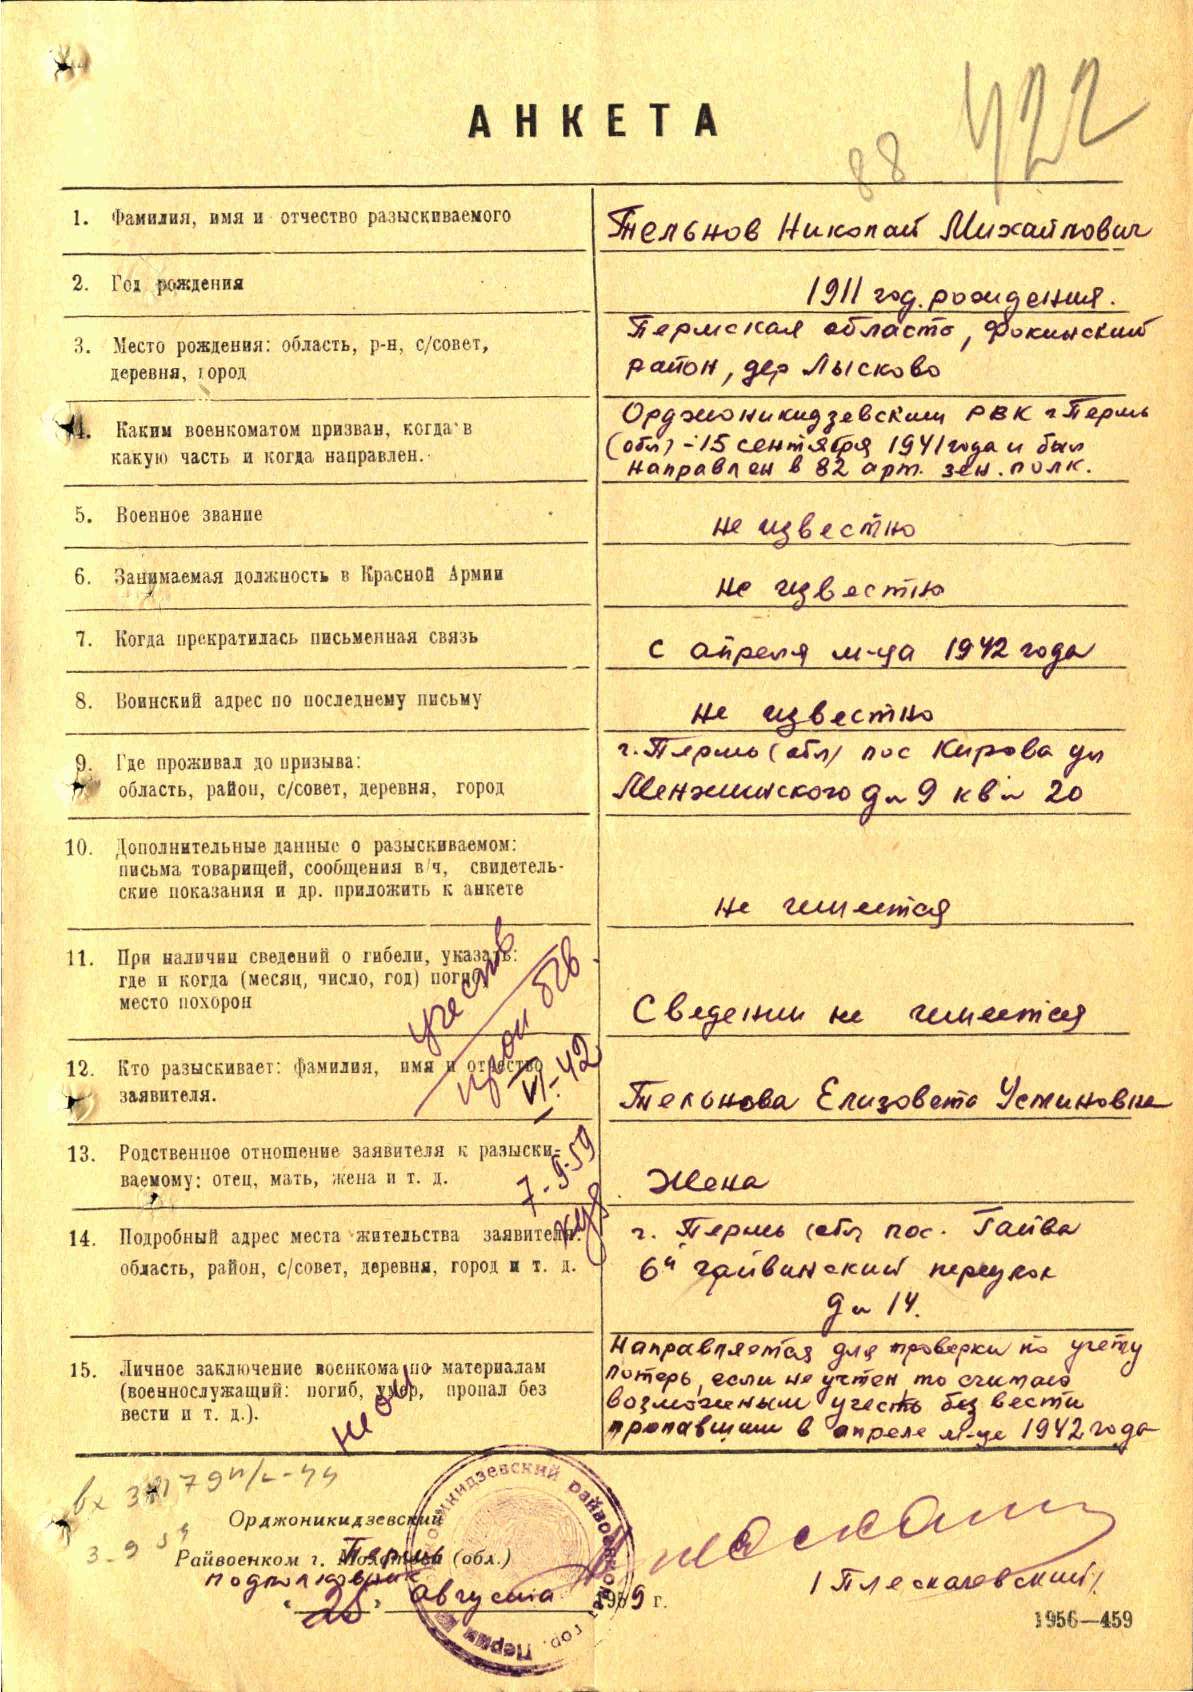 422
88
АНКЕТА
1. Фамилия, имя и отчество разыскиваемого
Тельнов Николай Михайлович
2. Год рождения
1911 год. рождения.
3. Место рождения: область, р-н, с/совет,
деревня, город
Пермская область, Фокинский
район, дер Лысково
4. Каким военкоматом призван, когда в
какую часть и когда направлен.
Орджоникидзевским РВК г Пермь
(обл) - 15 сентября 1941 года и был
направлен в 82 арт. зен. полк.
5. Военное звание
не известно
6. Занимаемая должность в Красной Армии
не известно
7. Когда прекратилась письменная связь
с апреля м-ца 1942 года
8. Воинский адрес по последнему письму
не известно
9. Где проживал до призыва:
область, район, с/совет, деревня, город
г. Пермь (обл) пос Кирова ул
Менжинского д 9 кв 20
10. Дополнительные данные о разыскиваемом:
письма товарищей, сообщения в/ч, свидетель-
ские показания и др. приложить к анкете
не имеется
11. При наличии сведений о гибели, указать:
где и когда (месяц, число, год) погиб
место похорон
Сведении не имеется
учесть
проп б/в
VI-42
12. Кто разыскивает: фамилия, имя и отчество
заявителя.
Тельнова Елизовета Устиновна
13. Родственное отношение заявителя к разыски-
ваемому: отец, мать, жена и т. д.
Жена
7-9-59
14. Подробный адрес места жительства заявителя:
область, район, с/совет, деревня, город и т. д.
г. Пермь (обл пос. Гайва
6й гайвинский переулок
д 14.
15. Личное заключение военкома по материалам
(военнослужащий: погиб, умер, пропал без
вести и т. д.).
Направляется для проверки по учету
потерь, если не учтен то считаю
возможным учесть без вести
пропавшим в апреле м-це 1942 года
вх
3-9 59
Орджоникидзевский
Райвоенком г. Пермь (обл.)
подполковник
"25" августа 1959 г.
/Плескачевский/
Орджоникидзевский райвоенкомат гор. Перми
1956—459